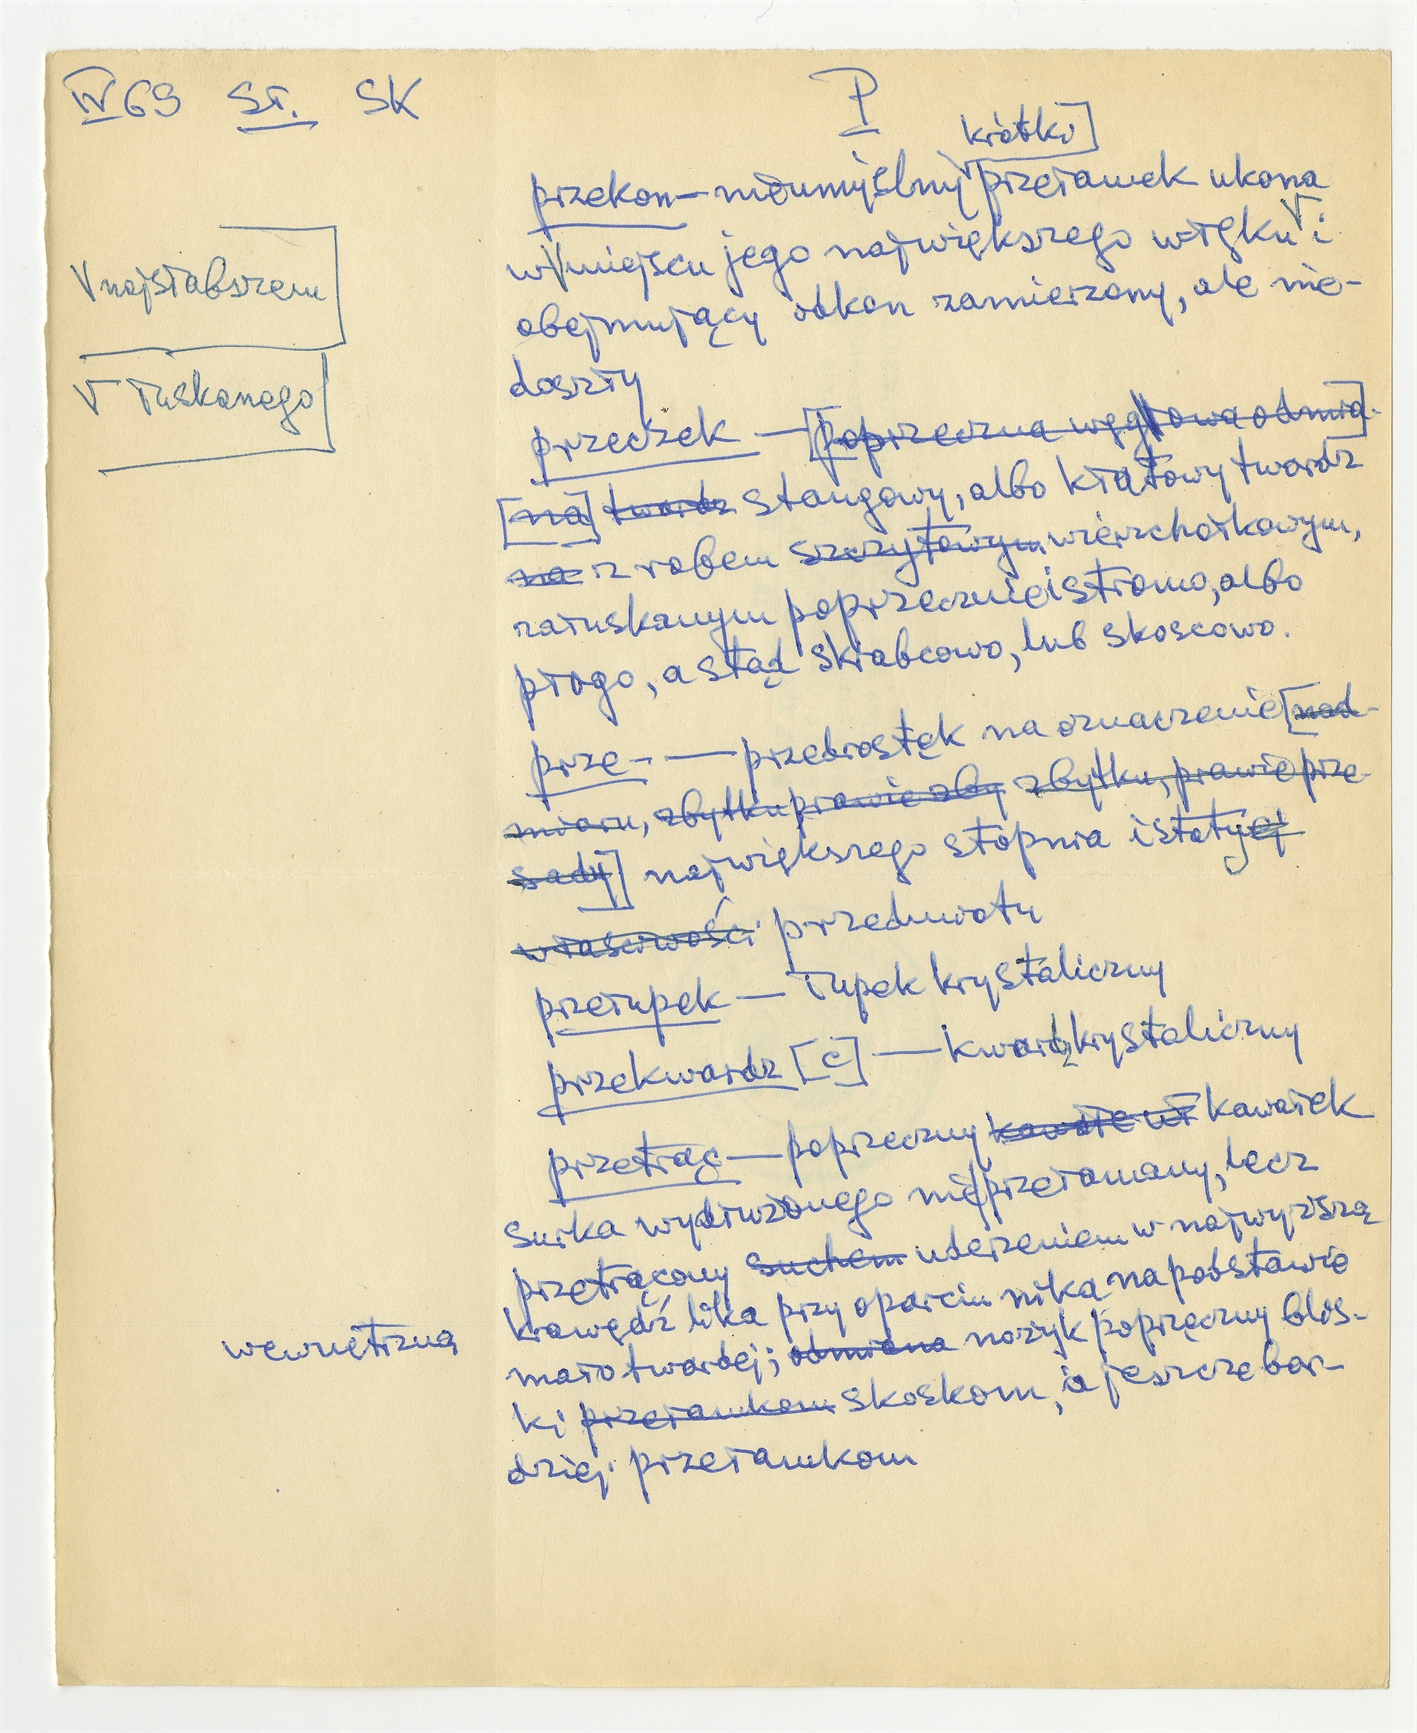 IV 69 ST. SK
P
krótki]
przekon — nieumyślny przełamek ukona
w miejscu jego największego wtęku i
V najsłabszem
obejmujący odkon zamierzony, ale nie-
doszły
V łuskanego
przeczek — [poprzeczna węgłowa odmia-
[na] twardz stangowy, albo kłątowy twardz
na z robem szczytowym wierzchołkowym,
załuskanym poprzecznie i stromo, albo
płogo, a stąd skrabcowo, lub skoscowo.
prze- — przedrostek na oznaczenie [nad-
miaru, zbytku prawie zby zbytku, prawie prze-
sady] największego stopnia istotyej
właściwości przedmiotu
przełupek — łupek krystaliczny
przekwardz [c] — kwardz krystaliczny
przetrąc — poprzeczny kawałek
surka wydłużonego nie przełamany, lecz
przetrącony suchem uderzeniem w najwyższą
krawędź lika przy oparciu nika na podstawie
wewnętrzną
mało twardej; odmiana nożyk poprzeczny blis-
ki przełamkom skoskom, a jeszcze bar-
dziej przełamkom